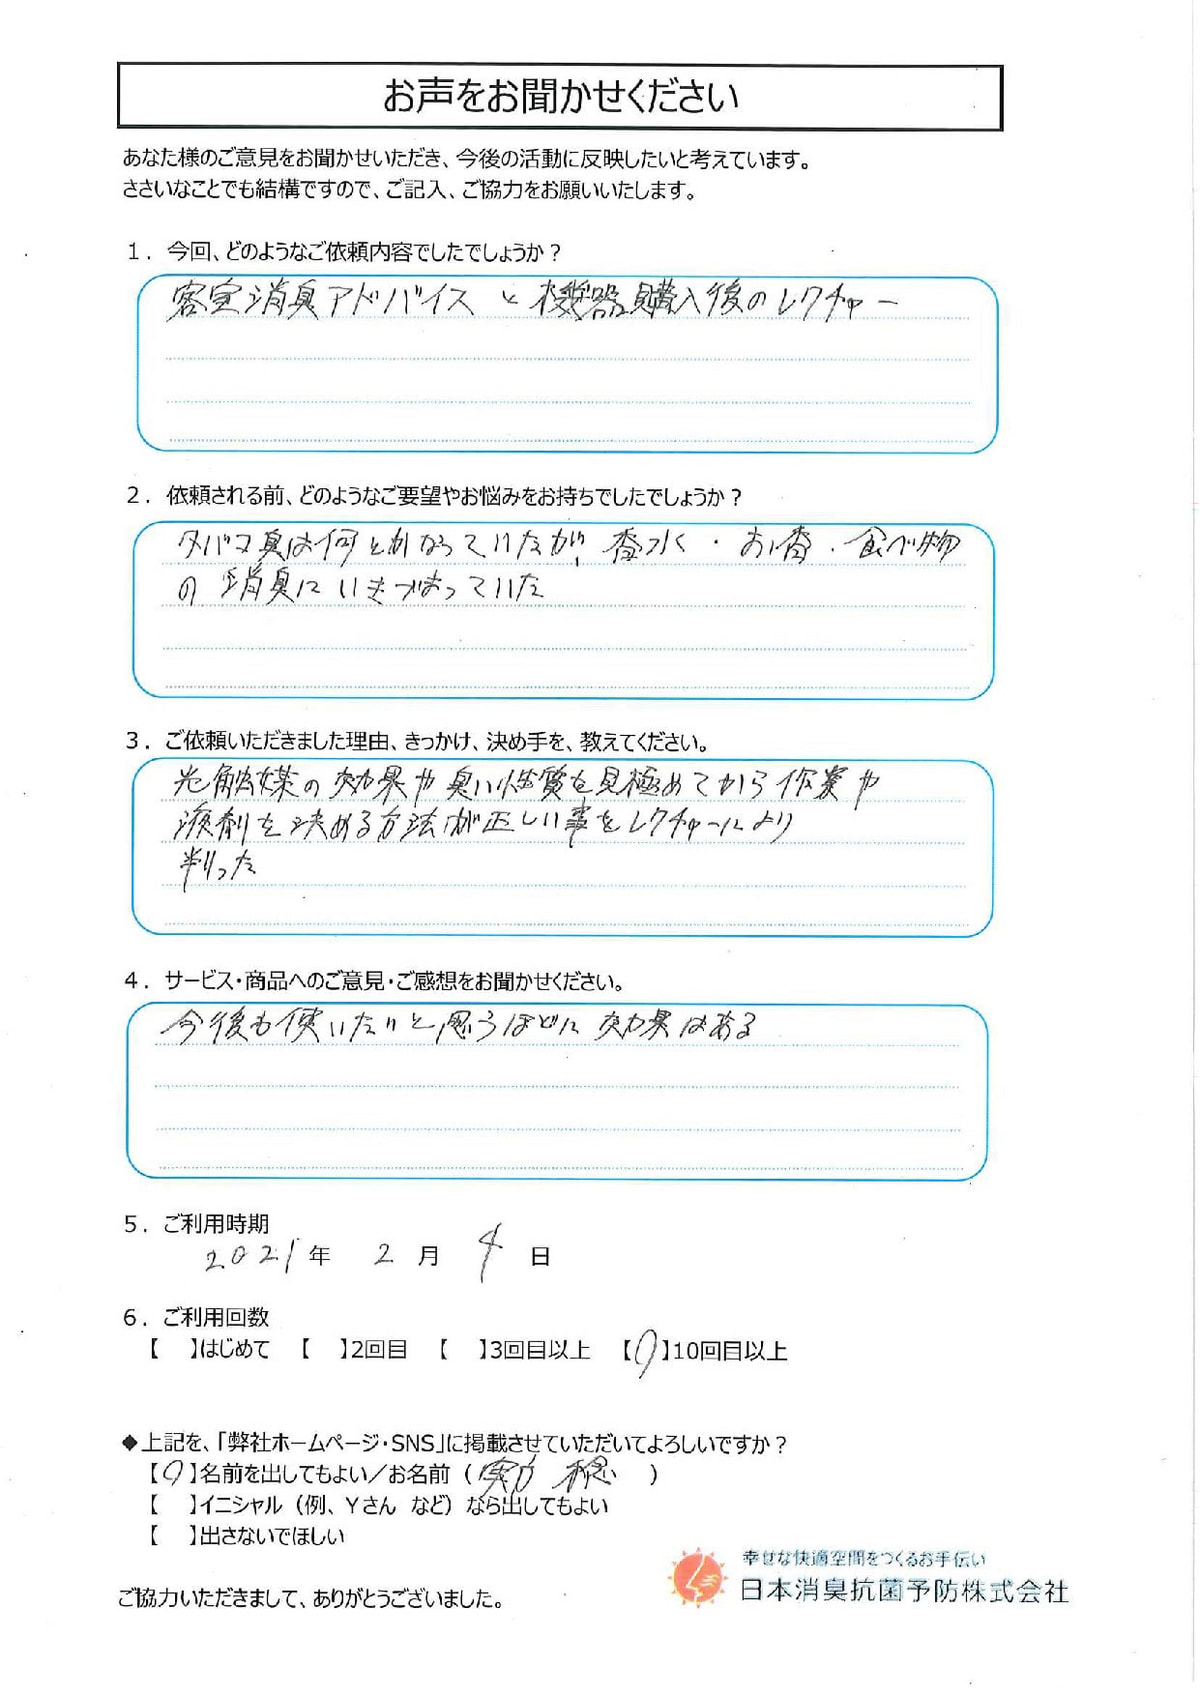 お声をお聞かせください
あなた様のご意見をお聞かせいただき、今後の活動に反映したいと考えています。
ささいなことでも結構ですので、ご記入、ご協力をお願いいたします。
1．今回、どのようなご依頼内容でしたでしょうか？
客室消臭アドバイスと機器購入後のレクチャー
2．依頼される前、どのようなご要望やお悩みをお持ちでしたでしょうか？
タバコ臭は何とかなっていたが、香水・お香・食べ物
の消臭にいきづまっていた
3．ご依頼いただきました理由、きっかけ、決め手を、教えてください。
光触媒の効果や臭い性質を見極めてから作業や
液剤を決める方法が正しい事をレクチャーにより
判った
4．サービス・商品へのご意見・ご感想をお聞かせください。
今後も使いたいと思うほどに効果はある
5．ご利用時期
2021年 2月 4日
6．ご利用回数
【 】はじめて 【 】2回目 【 】3回目以上 【○】10回目以上
◆上記を、「弊社ホームページ・SNS」に掲載させていただいてよろしいですか？
【○】名前を出してもよい／お名前（ ）
【 】イニシャル（例、Yさん など）なら出してもよい
【 】出さないでほしい
ご協力いただきまして、ありがとうございました。
幸せな快適空間をつくるお手伝い
日本消臭抗菌予防株式会社